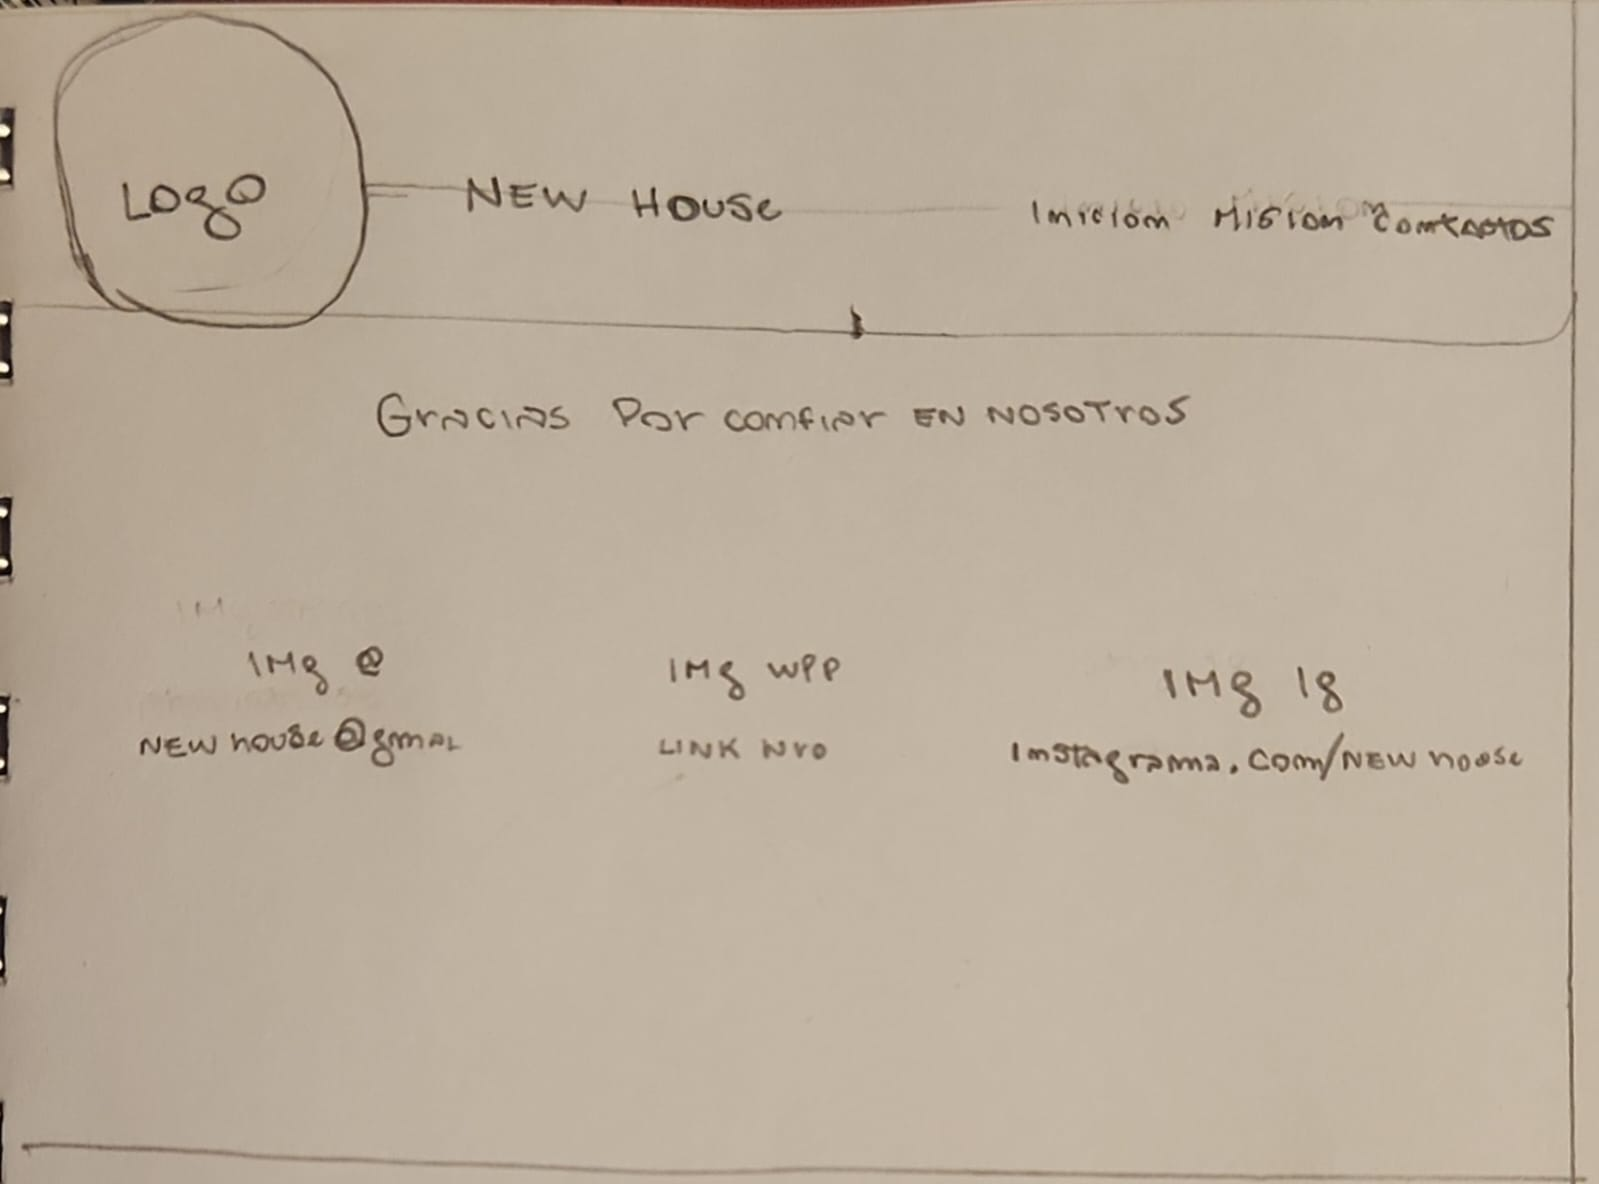 Logo
NEW HOUSe
Inicion Mision Contactos
Gracias Por confiar EN NOSOTrOS
IMg @
NEW house @gmaL
IMg wPP
LINK Nro
IMg Ig
Instagrama.com/NEW hoose